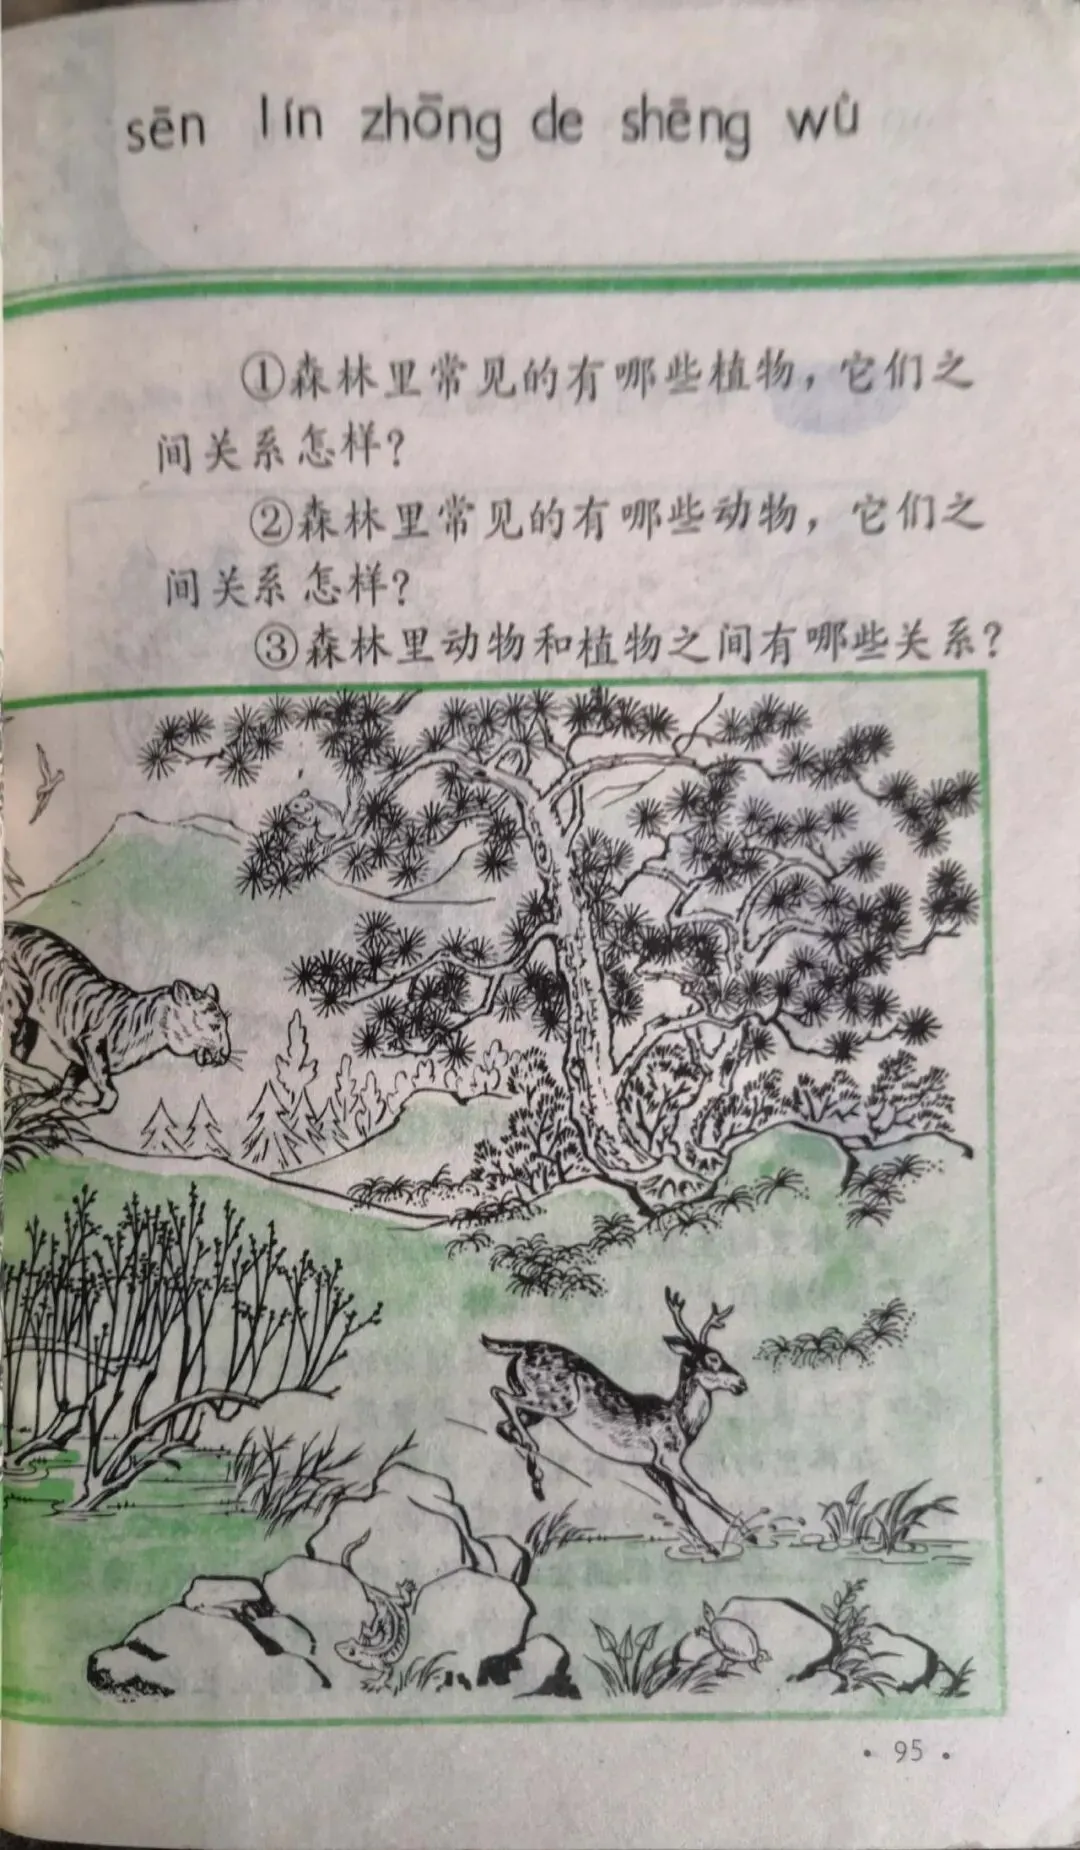 sēn lín zhōng de shēng wù
①森林里常见的有哪些植物，它们之
间关系怎样？
②森林里常见的有哪些动物，它们之
间关系怎样？
③森林里动物和植物之间有哪些关系？
· 95 ·